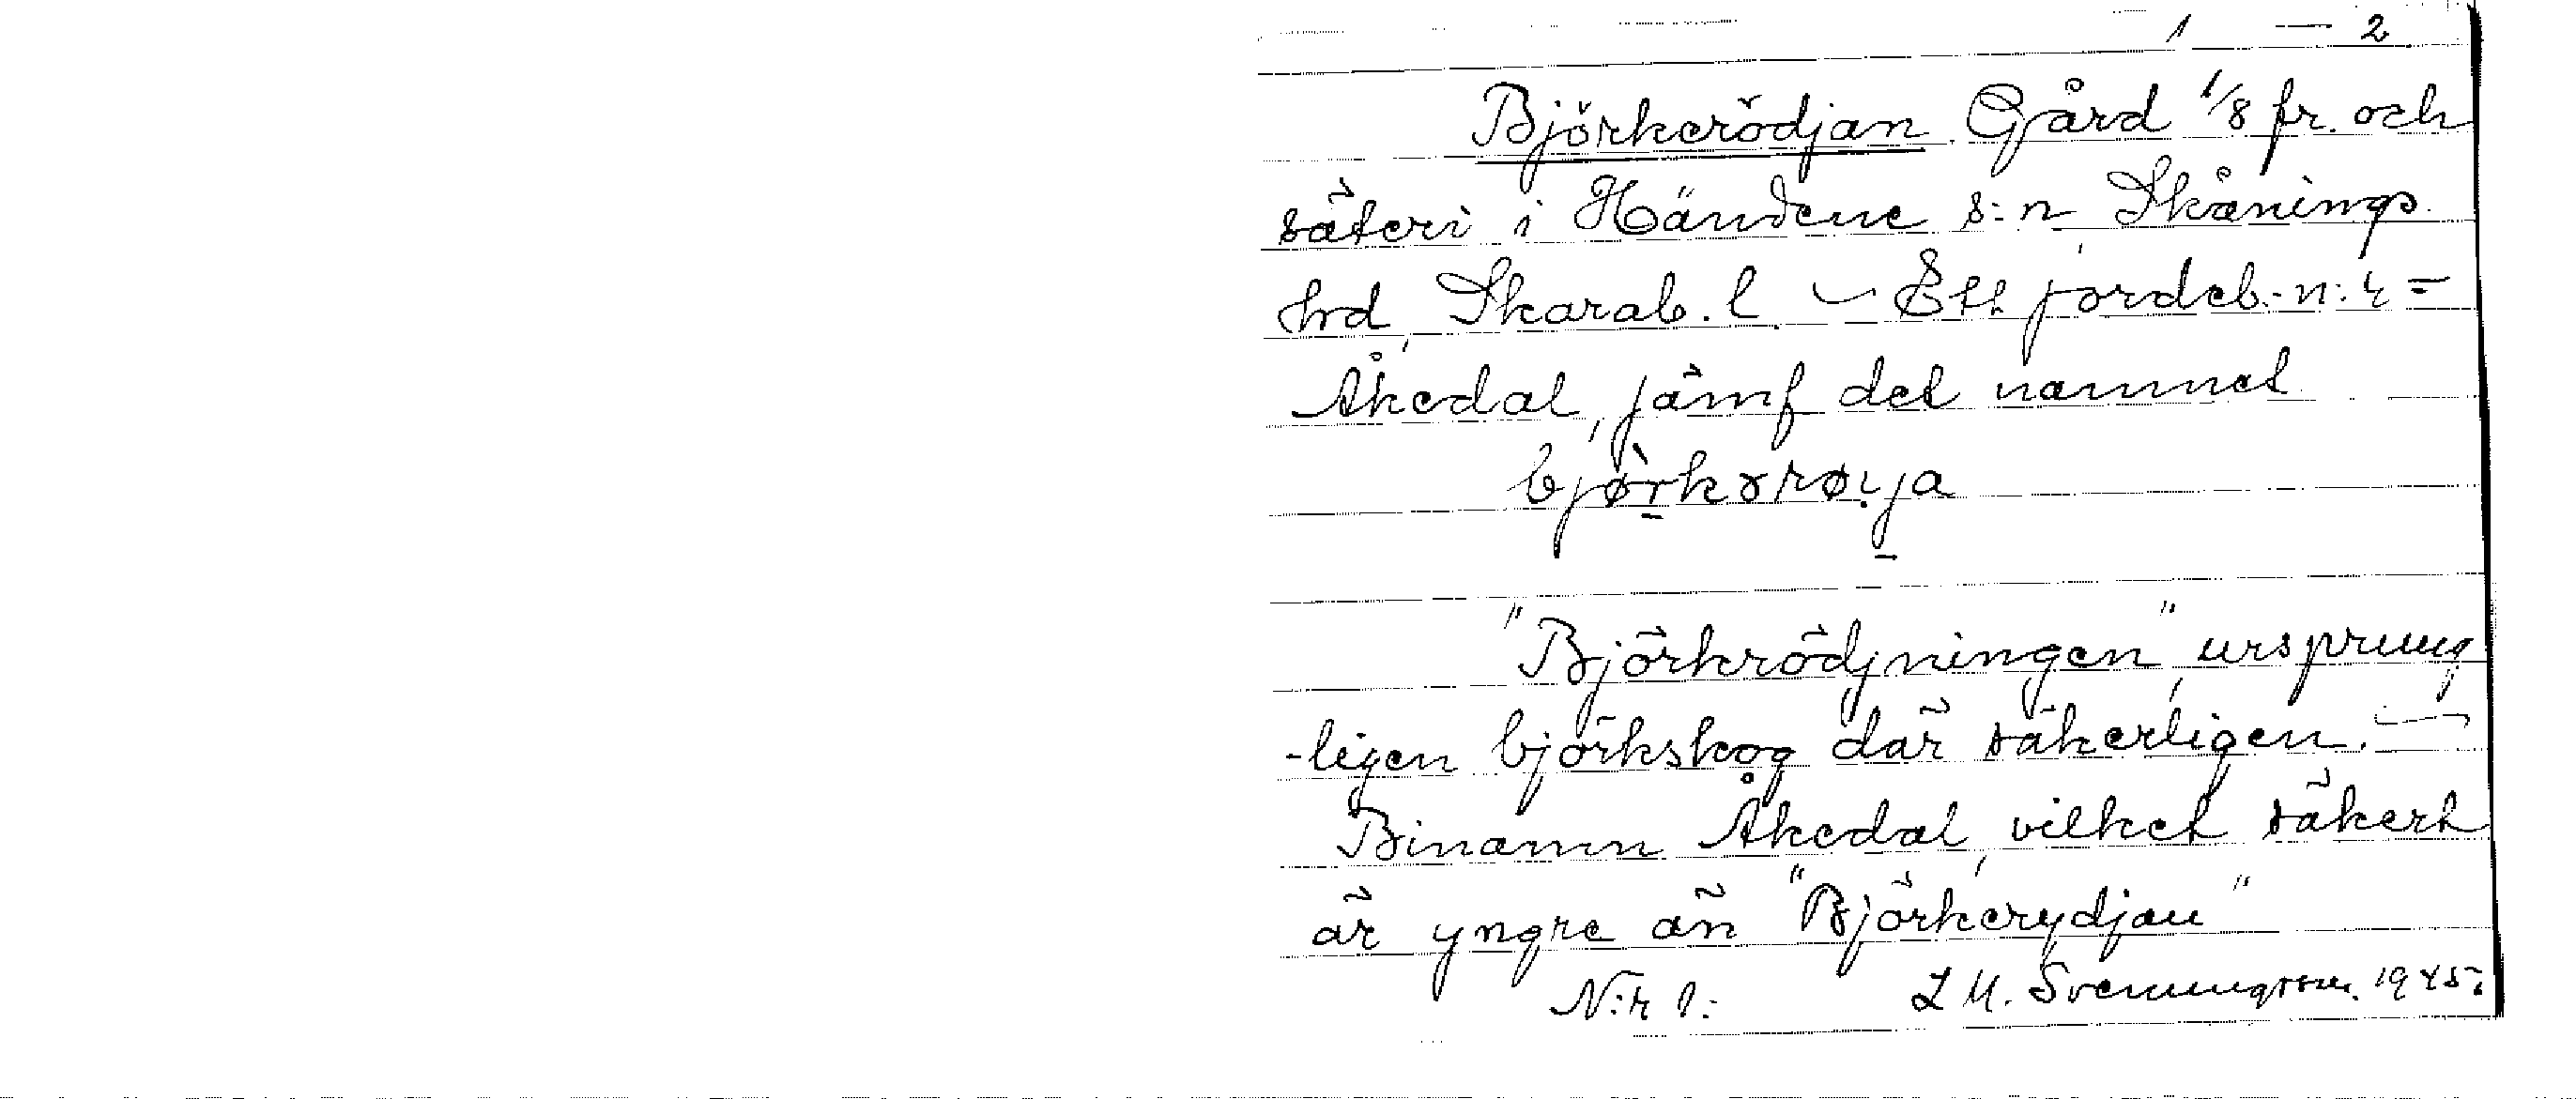 1 — 2
Björkerödjan Gård 1/8 fr. och
säteri i Händene s:n Skånings
hrd, Skarab. l. — Ett jordeb.-n:r =
Åkedal, jämf det namnet
"Björkrödjningen", ursprung
-ligen björkskog där säkerligen. —
Binamn Åkedal, vilket säkert
är yngre än "Björkerydjan"
N:r 1: L M. Svenungsson. 1945.